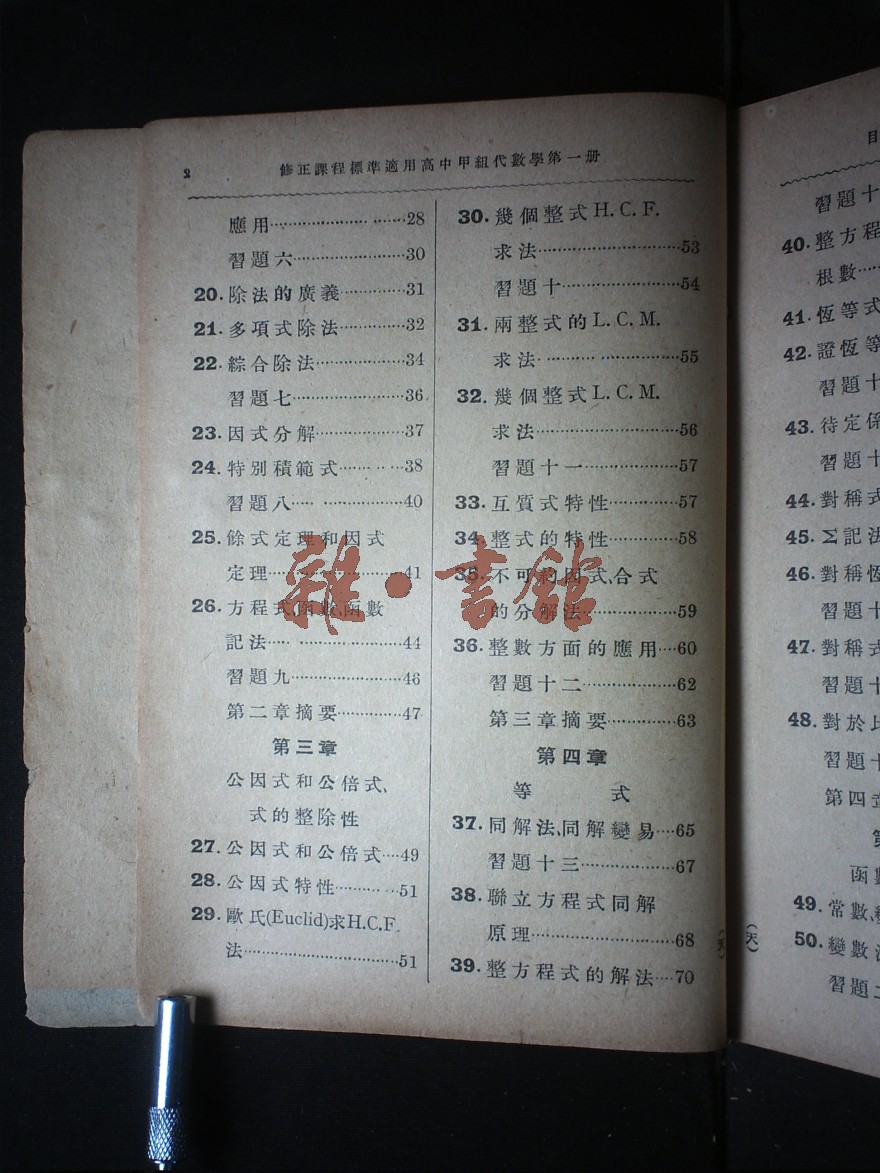 2
修正課程標準適用高中甲組代數學第一册
應用……………………28
習題六…………………30
20.除法的廣義…………31
21.多項式除法…………32
22.綜合除法……………34
習題七…………………36
23.因式分解……………37
24.特別積範式…………38
習題八…………………40
25.餘式定理和因式
定理……………………41
26.方程式,函數,函數
記法……………………44
習題九…………………46
第二章摘要……………47
第三章
公因式和公倍式、
式的整除性
27.公因式和公倍式…49
28.公因式特性…………51
29.歐氏(Euclid)求H.C.F.
法………………………51
30.幾個整式H.C.F.
求法……………………53
習題十…………………54
31.兩整式的L.C.M.
求法……………………55
32.幾個整式L.C.M.
求法……………………56
習題十一………………57
33.互質式特性…………57
34.整式的特性…………58
35.不可約因式、合式
的分解法………………59
36.整數方面的應用…60
習題十二………………62
第三章摘要……………63
第四章
等 式
37.同解法、同解變易…65
習題十三………………67
38.聯立方程式同解
原理……………………68
39.整方程式的解法…70
(天)
雜·書館
目
習題十
40.整方程
根數……
41.恆等式
42.證恆等
習題十
43.待定係
習題十
44.對稱式
45.Σ記法
46.對稱恆
習題十
47.對稱式
習題十
48.對於比
習題十
第四章
函數
49.常數、
50.變數
習題二
(天)